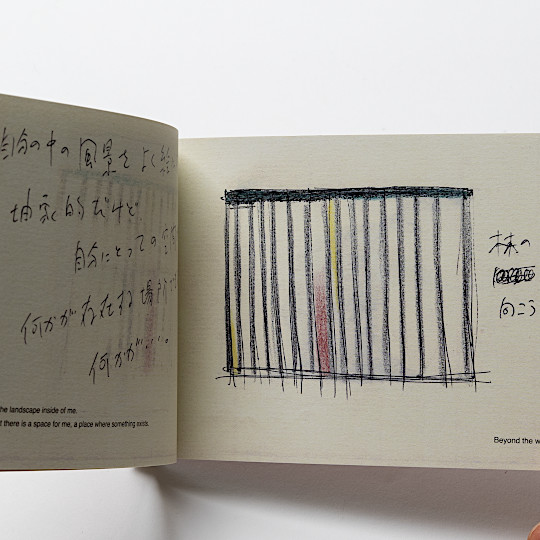 自分の中の風景をよく
抽象的だけど、
自分にとっての
何かが存在する場所で
何かが…。
the landscape inside of me.
there is a space for me, a place where something exists.
林の
向こう
Beyond the